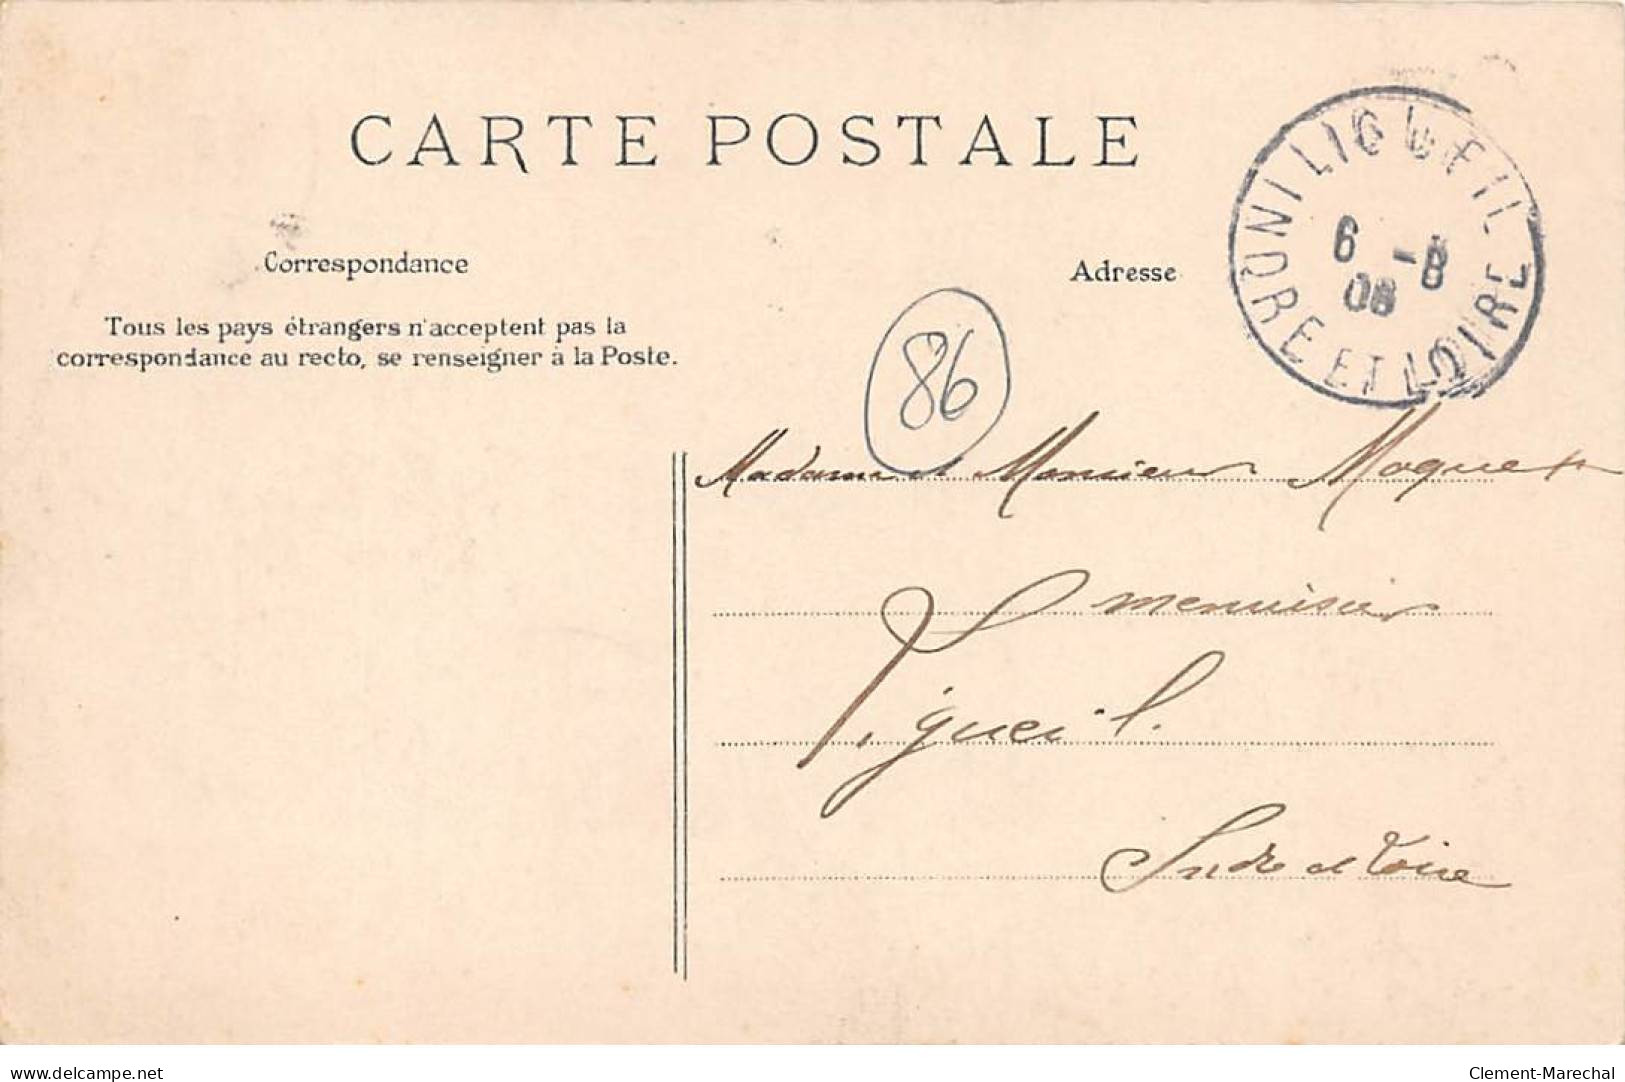 CARTE POSTALE
Correspondance
Adresse
Tous les pays étrangers n'acceptent pas la
correspondance au recto, se renseigner à la Poste.
LIGUEIL
6 -8
06
INDRE ET LOIRE
86
Madame et Monsieur Moquet
menuisier
Ligueil.
Indre et Loire
delcampe.net
Clement-Marechal